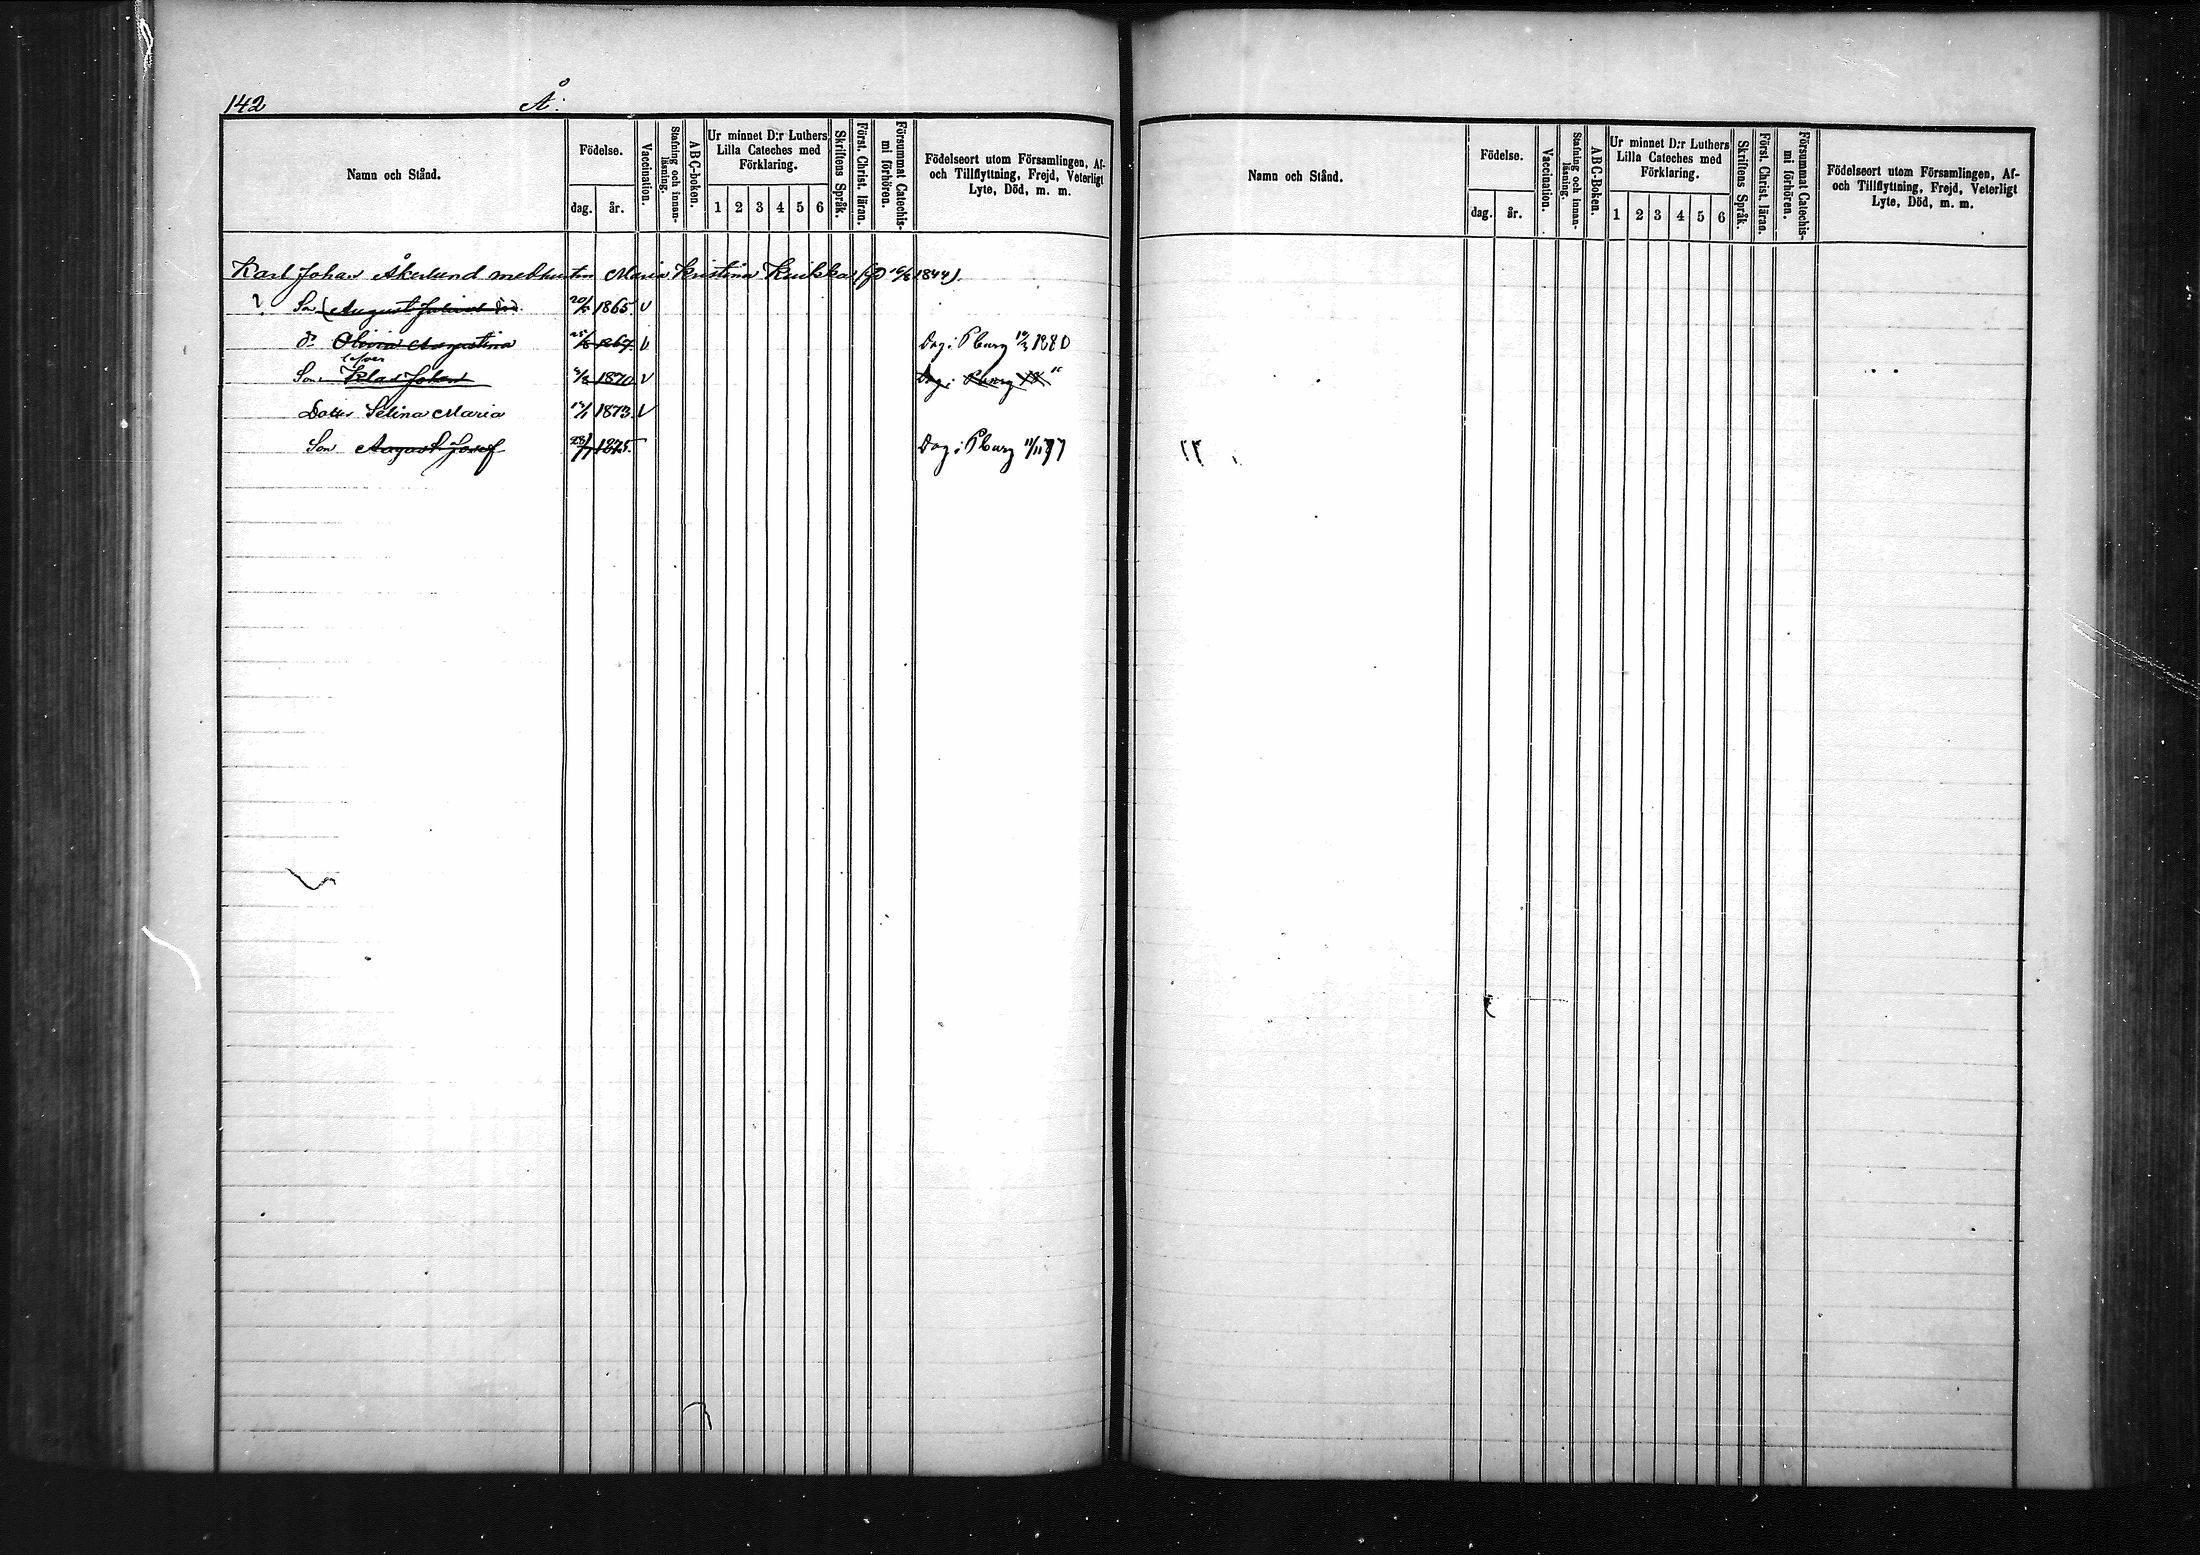 142
Å.
Namn och Stånd.
Födelse.
dag. år.
Vaccination.
Stafning och innan-läsning.
ABC-boken.
Ur minnet D:r Luthers
Lilla Cateches med
Förklaring.
1 2 3 4 5 6
Skriftens Språk.
Först. Christ. läran.
Försummat Catechis-mi förhören.
Födelseort utom Församlingen, Af-
och Tillflyttning, Frejd, Veterligt
Lyte, Död, m. m.
Karl Johan Åkerlund med hustru Maria Kristina (fö 1844).
Son August 20/5 1865 v
Do Olivia Augustina 1867 v Dog i Pburg 1880
Son Klas Johan 1870 v Dog i Pburg
Dotter Selina Maria 1873 v
Son August Josef 1875 Dog i Pburg 11/11 77
Namn och Stånd.
Födelse.
dag. år.
Vaccination.
Stafning och innan-läsning.
ABC-Boken.
Ur minnet D:r Luthers
Lilla Cateches med
Förklaring.
1 2 3 4 5 6
Skriftens Språk.
Först. Christ. läran.
Försummat Catechis-mi förhören.
Födelseort utom Församlingen, Af-
och Tillflyttning, Frejd, Veterligt
Lyte, Död, m. m.